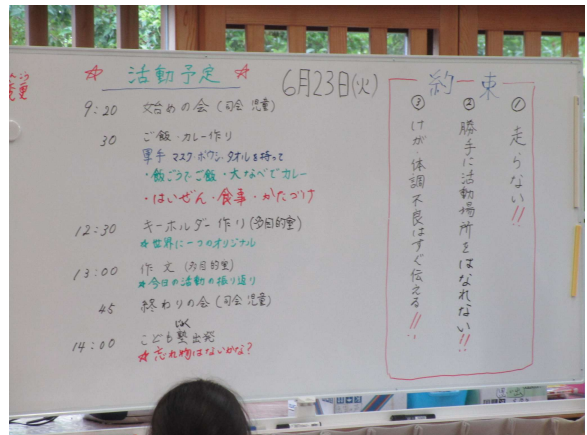 ☆ 活動予定 ☆
6月23日(火)
9:20 始めの会(司会 児童)
30 ご飯・カレー作り
軍手 マスク・ボウシ・タオルを持って
・飯ごうでご飯・大なべでカレー
・はいぜん・食事・かたづけ
12:30 キーホルダー作り(多目的室)
☆世界に一つのオリジナル
13:00 作文(多目的室)
☆今日の活動の振り返り
45 終わりの会(司会 児童)
14:00 こども塾出発
☆忘れ物はないかな?
約束
① 走らない!!
② 勝手に活動場所をはなれない!!
③ けが・体調不良はすぐ伝える!!